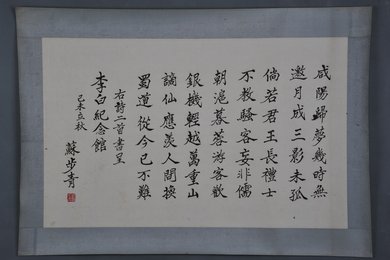 咸陽歸夢幾時無
邀月成三影未孤
倘若君王長禮士
不教騷客妄非儒
朝滬暮蓉游客歡
銀機輕越萬重山
謫仙應羨人間換
蜀道從今已不難
右詩二首書呈
李白紀念館
己未立秋
蘇步青